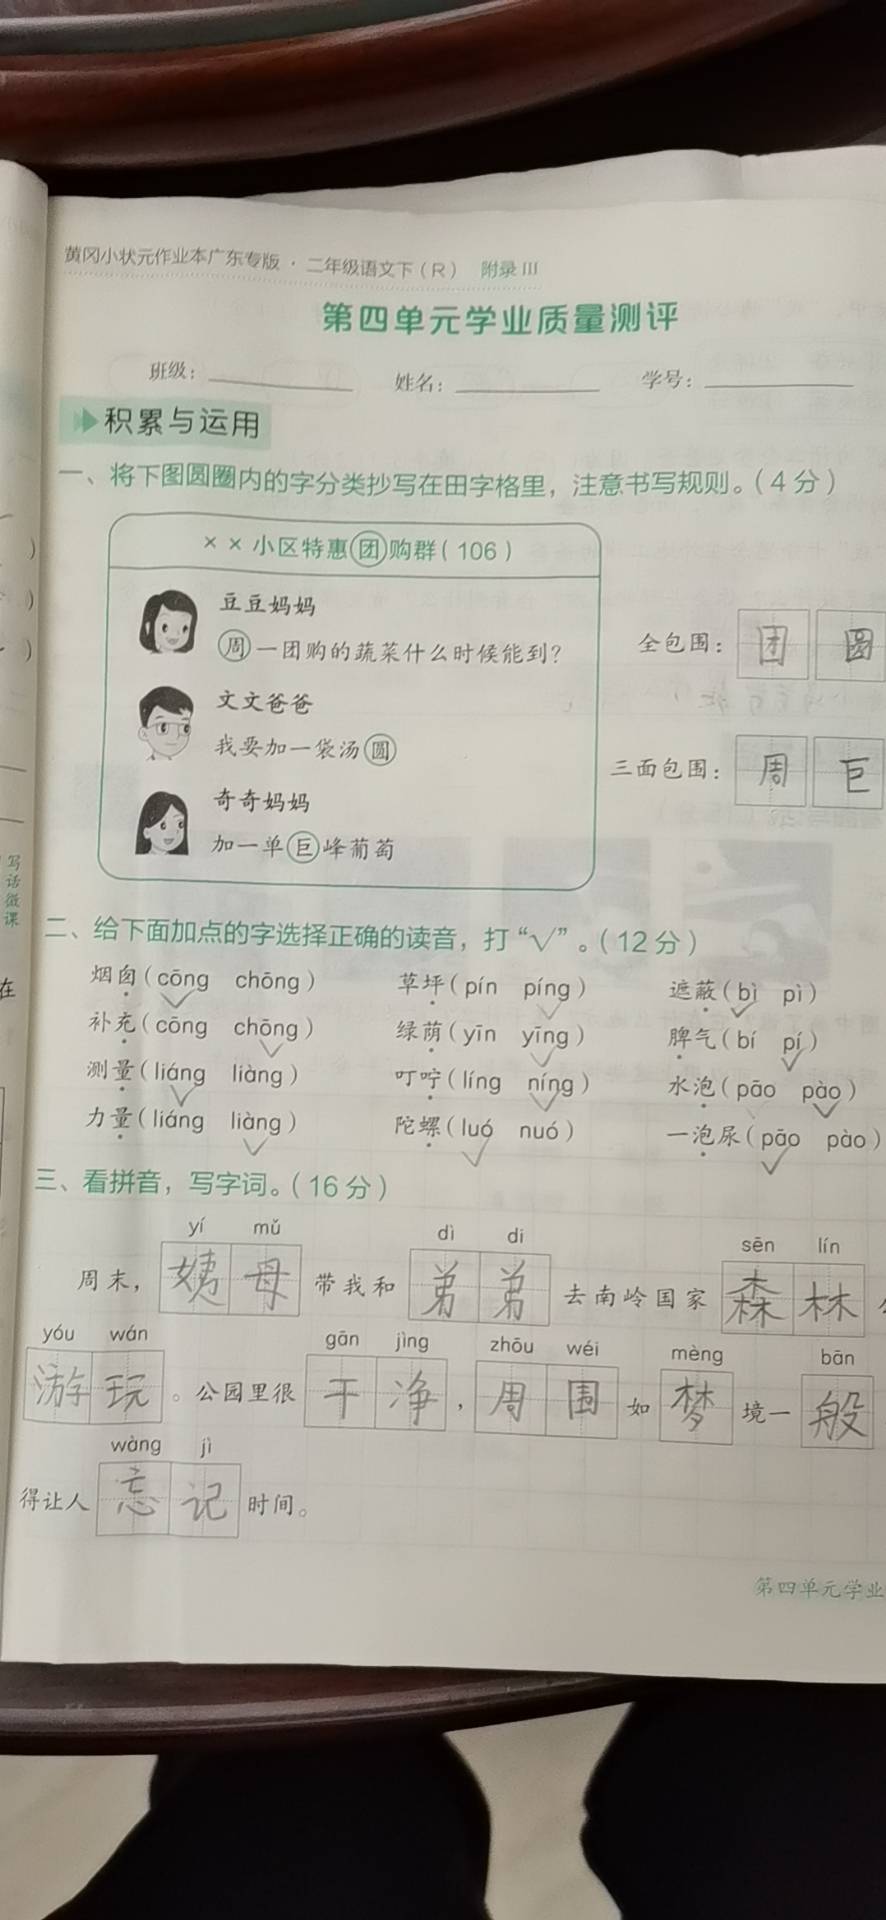 黄冈小状元作业本广东专版·二年级语文下（R） 附录III
第四单元学业质量测评
班级： 姓名： 学号：
积累与运用
一、将下图圆圈内的字分类抄写在田字格里，注意书写规则。（4分）
××小区特惠团购群（106）
豆豆妈妈
周一团购的蔬菜什么时候能到？
文文爸爸
我要加一袋汤圆
奇奇妈妈
加一单巨峰葡萄
全包围： 团 圆
三面包围： 周 巨
二、给下面加点的字选择正确的读音，打“√”。（12分）
烟囱（cōng chōng） 草坪（pín píng） 遮蔽（bì pì）
补充（cōng chōng） 绿荫（yīn yīng） 脾气（bí pí）
测量（liáng liàng） 叮咛（líng níng） 水泡（pāo pào）
力量（liáng liàng） 陀螺（luó nuó） 一泡尿（pāo pào）
三、看拼音，写字词。（16分）
yí mǔ dì di sēn lín
周末，姨母带我和弟弟去南岭国家森林
yóu wán gān jìng zhōu wéi mèng bān
游玩。公园里很干净，周围如梦境一般
wàng jì
得让人忘记时间。
第四单元学业
写话微课
在